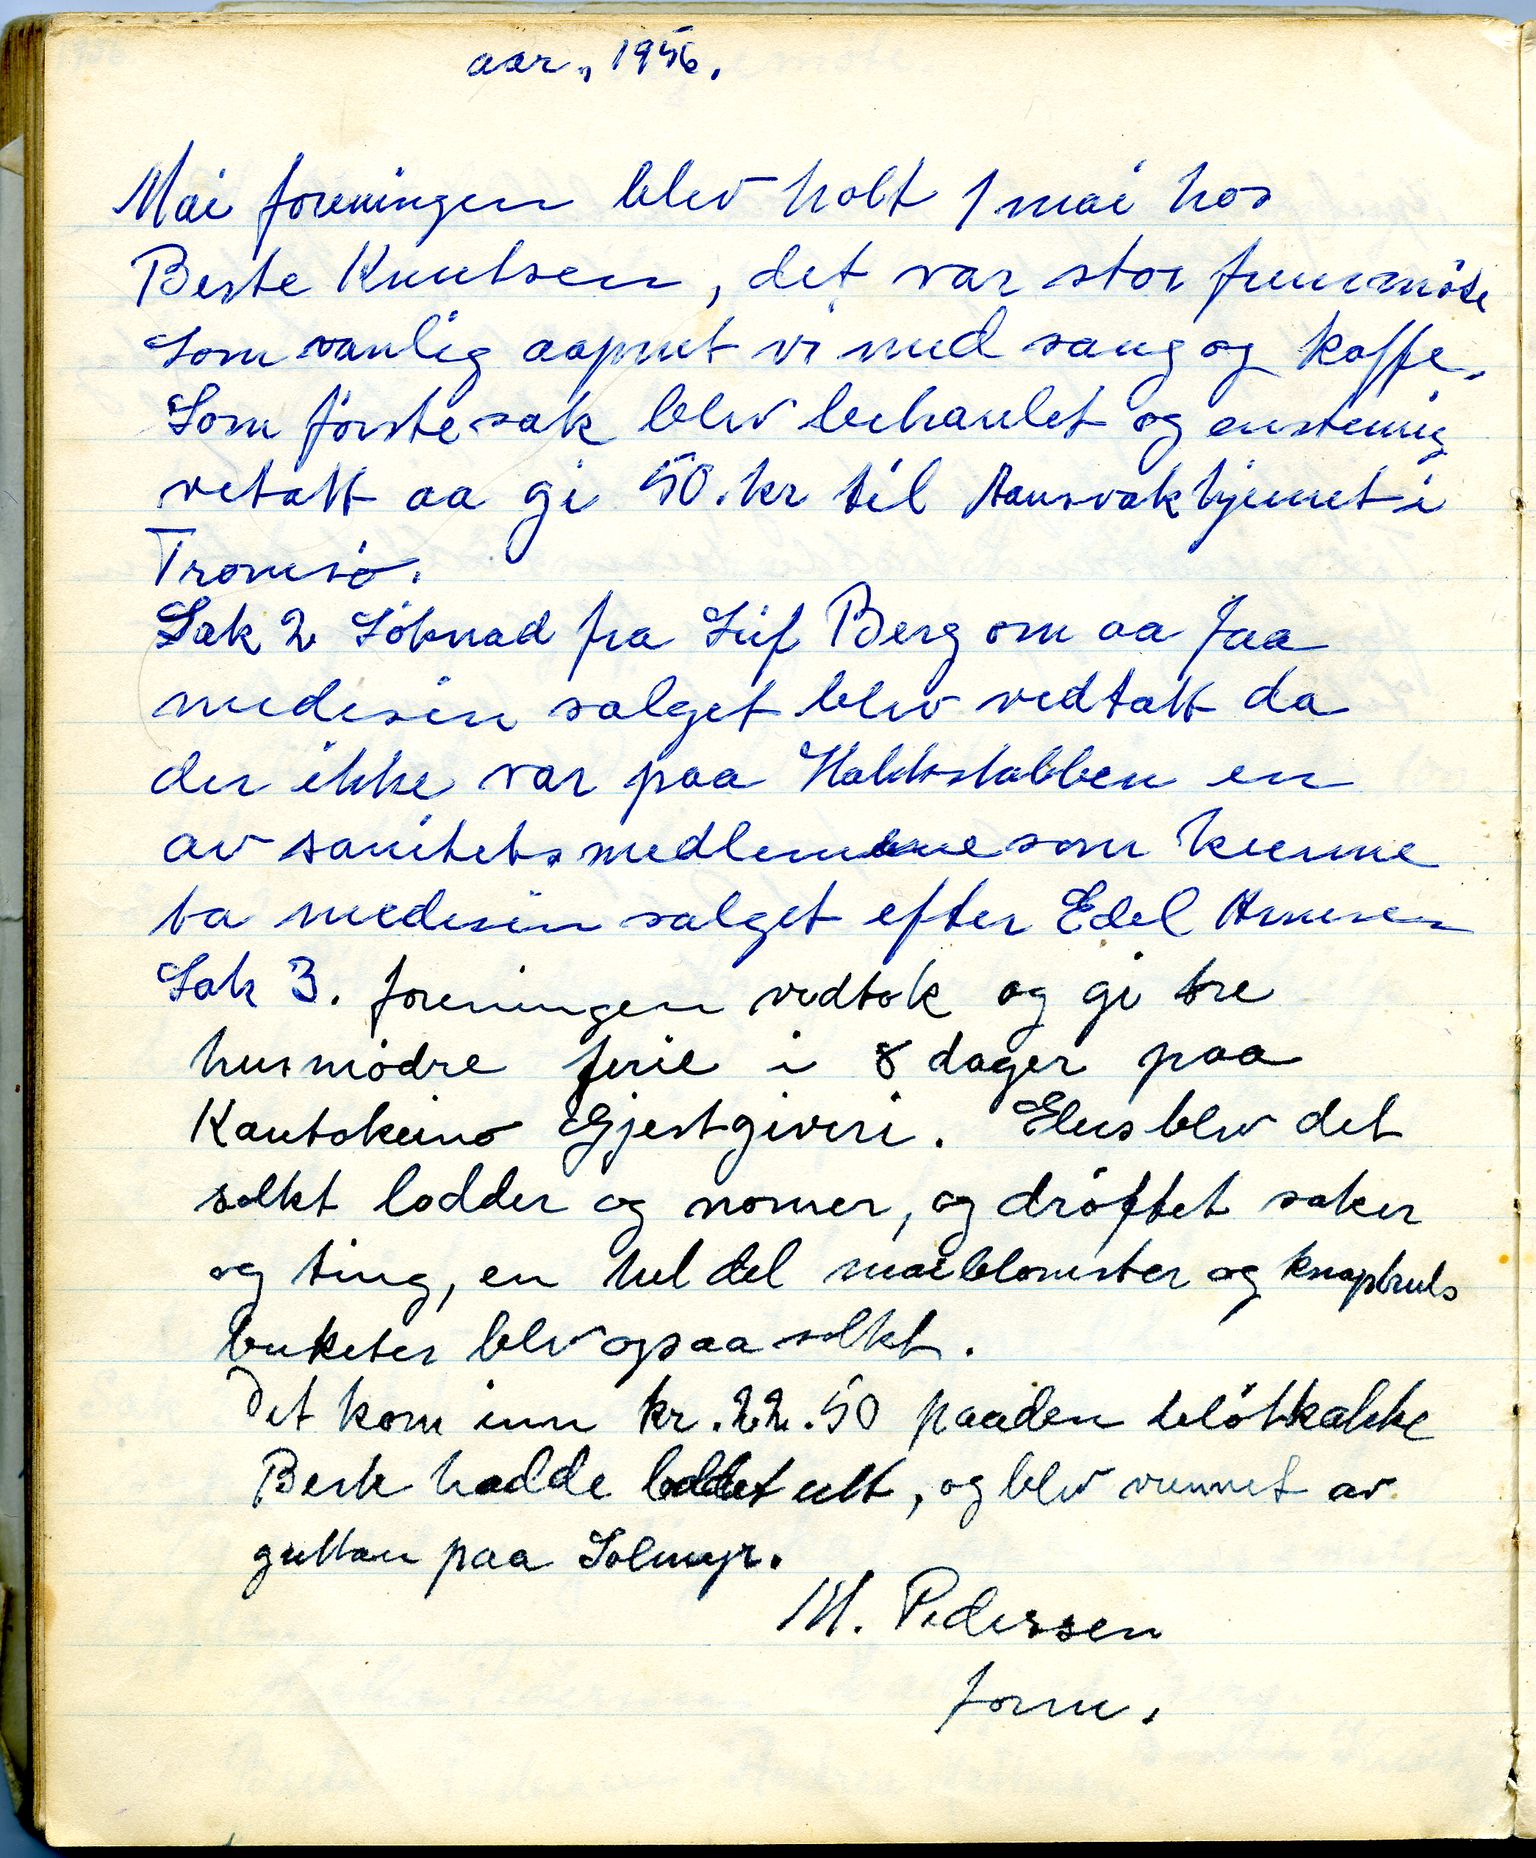 aar, 1956.
Mai foreningen blev holt 1 mai hos
Berte Knutsen, det var stor fremmöte
Som vanlig aapnet vi med sang og kaffe,
Som förstesak blev behanlet og enstemig
vetatt aa gi 50. kr til Aansvakhjemet i
Tromsö.
Sak 2 Söknad fra Leif Berg om aa faa
medisin salget blev vedtatt da
der ikke var paa en
av sanitetsmedlemene som kunne
ta medisin salget efter Edel
Sak 3. foreningen vedtok og gi tre
husmödre ferie i 8 dager paa
Kautokeino Gjestgiveri. Elers blev det
solkt lodder og nomer, og dröftet saker
og ting, en hel del maiblomster og knaphuls
buketer blev ogsaa solkt.
Det kom inn kr. 22.50 paa den blötkakke
Berte hadde loddet utt, og blev vunnet av
guttan paa Solmyr.
M. Pedersen
form.